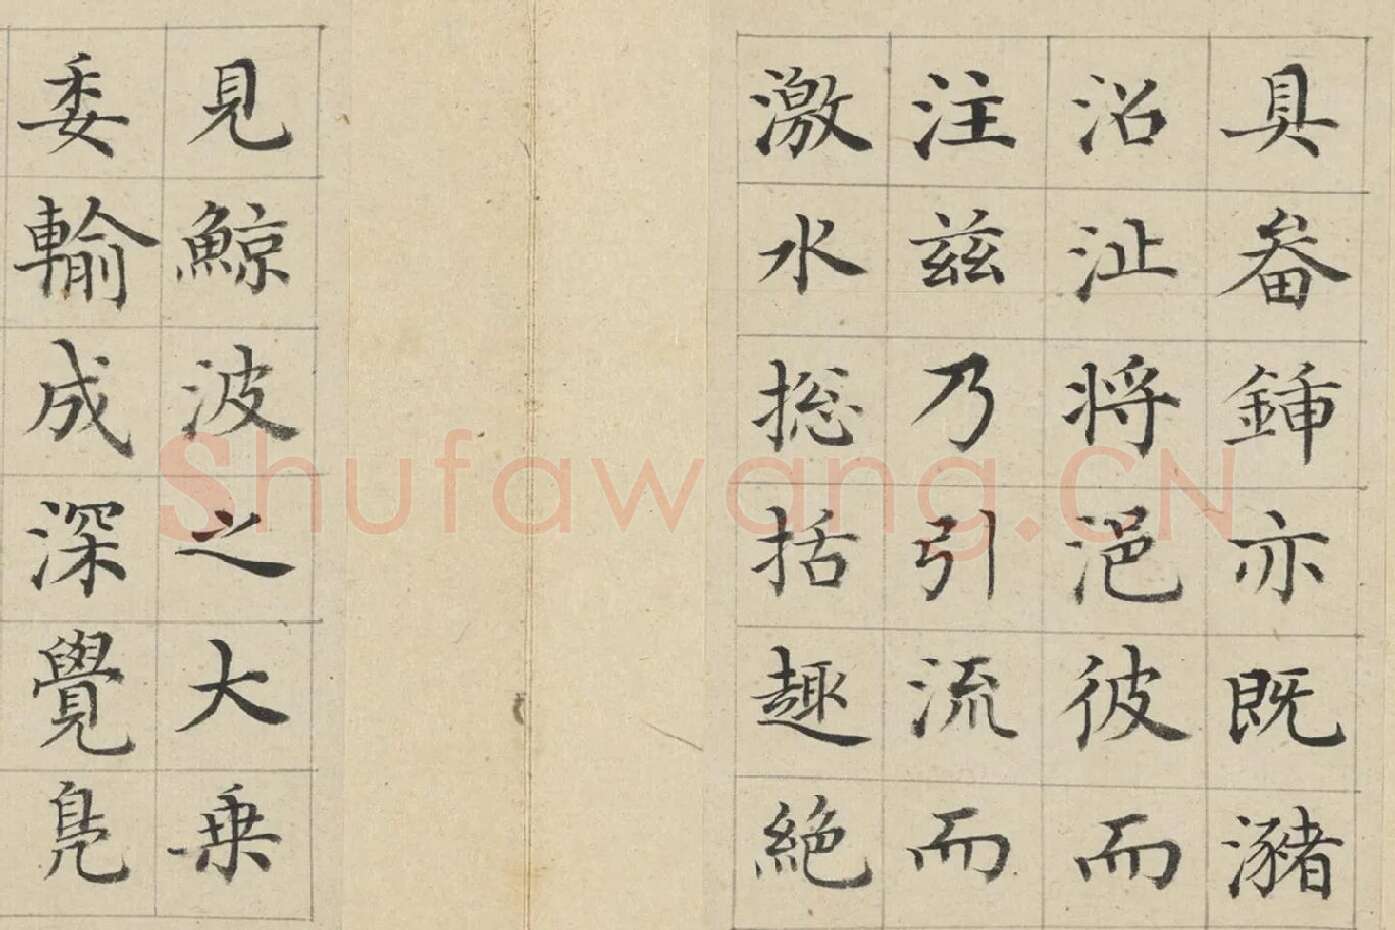 具畚鍤亦既瀦
沼沚将浥彼而
注茲乃引流而
激水捴括趣絶
見鯨波之大乗
委輸成深覺鳧
Shufawang.CN